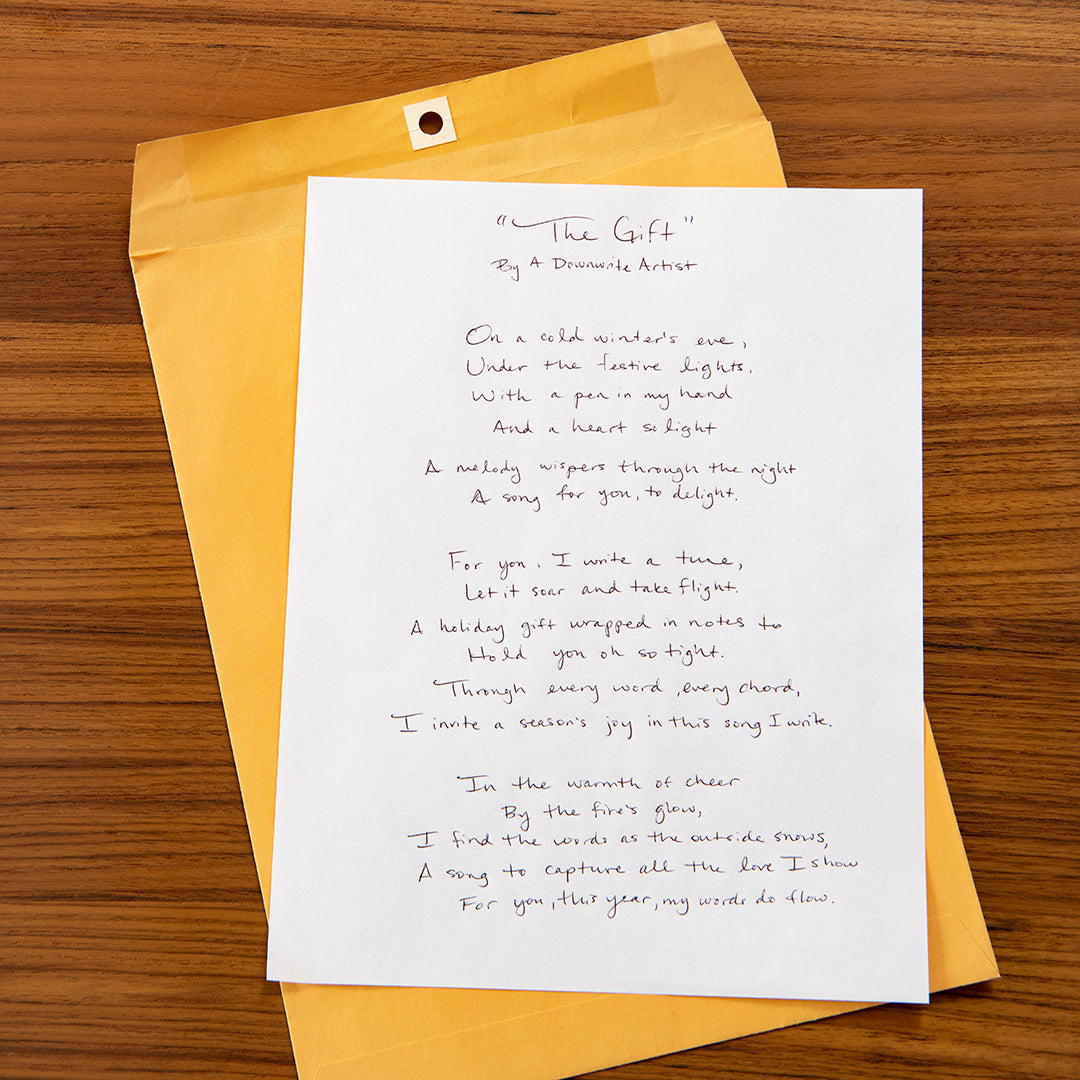 "The Gift"
By A Downwrite Artist
On a cold winter's eve,
Under the festive lights,
With a pen in my hand
And a heart so light
A melody wispers through the night
A song for you, to delight.
For you, I write a tune,
Let it soar and take flight.
A holiday gift wrapped in notes to
Hold you oh so tight.
Through every word, every chord,
I invite a season's joy in this song I write.
In the warmth of cheer
By the fire's glow,
I find the words as the outside snows,
A song to capture all the love I show
For you, this year, my words do flow.